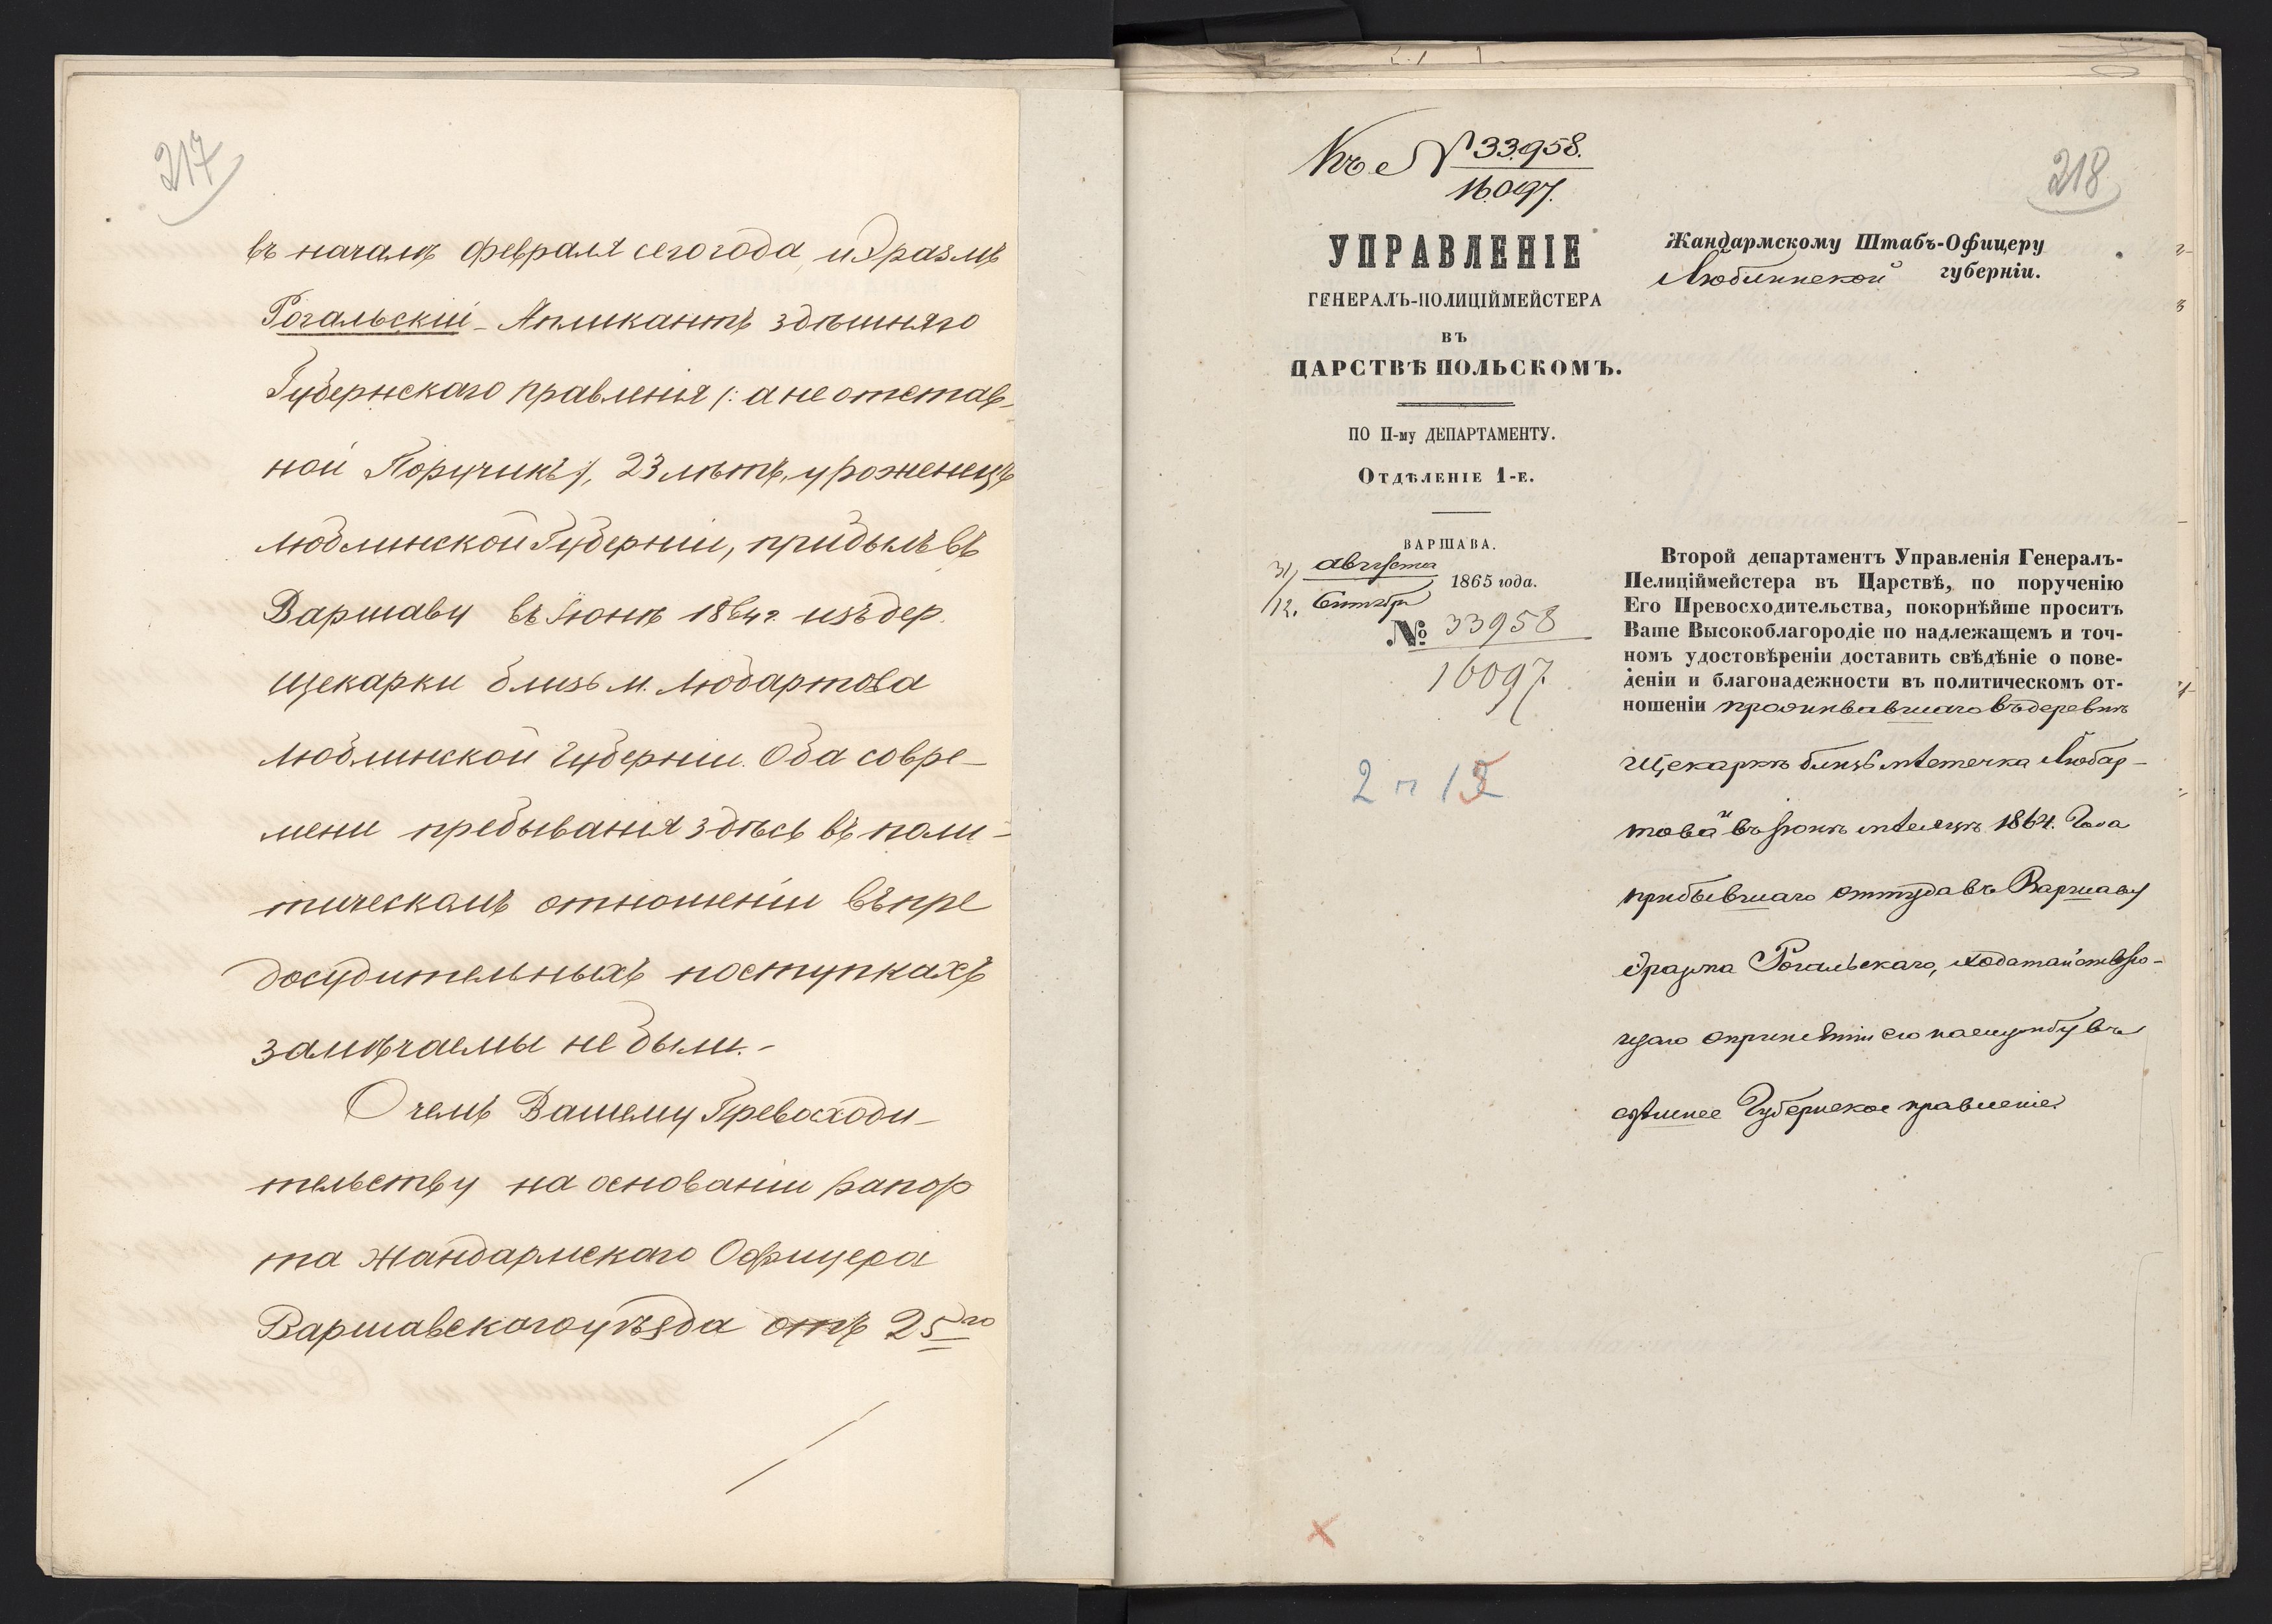 217
въ началѣ февраля сего года, и Эразмъ
Рогальскій - Апликантъ здѣшняго
Губернскаго правленія /: а не отстав-
ной Поручикъ:/, 23 лѣтъ, уроженецъ
Люблинской Губерніи, прибылъ въ
Варшаву въ Іюнѣ 1864 г. изъ дер.
Щекарки близь м. Любартова
Люблинской губерніи. Оба со вре-
мени пребыванія здѣсь въ поли-
тическомъ отношеніи въ пре
досудительныхъ поступкахъ
замѣчаемы не были.-
О чемъ Вашему Превосходи-
тельству на основаніи рапор
та Жандармскаго Офицера
Варшавскаго уѣзда отъ 25го
Къ № 33958.
16.097.
218
УПРАВЛЕНІЕ
ГЕНЕРАЛЪ-ПОЛИЦІЙМЕЙСТЕРА
въ
ЦАРСТВѢ ПОЛЬСКОМЪ.
ПО II-му ДЕПАРТАМЕНТУ.
Отдѣленіе 1-е.
ВАРШАВА.
31/ августа
1865 года.
/12. Сентябр
№ 33958
16097
2 п 12
Жандармскому Штабъ-Офицеру
Люблинской губерніи.
Второй департаментъ Управленія Генералъ-
Пелиціймейстера въ Царствѣ, по порученію
Его Превосходительства, покорнѣйше проситъ
Ваше Высокоблагородіе по надлежащемъ и точ-
номъ удостовѣреніи доставить свѣдѣніе о пове-
деніи и благонадежности въ политическомъ от-
ношеніи проживавшаго въ деревнѣ
Щекаркѣ близь мѣстечка Любар-
това и въ Іюнѣ мѣсяцѣ 1864. года
прибывшаго оттуда въ Варшаву
Эразма Рогальскаго, ходатайствую-
щаго о принятіи его на службу въ
здѣшнее Губернское правленіе